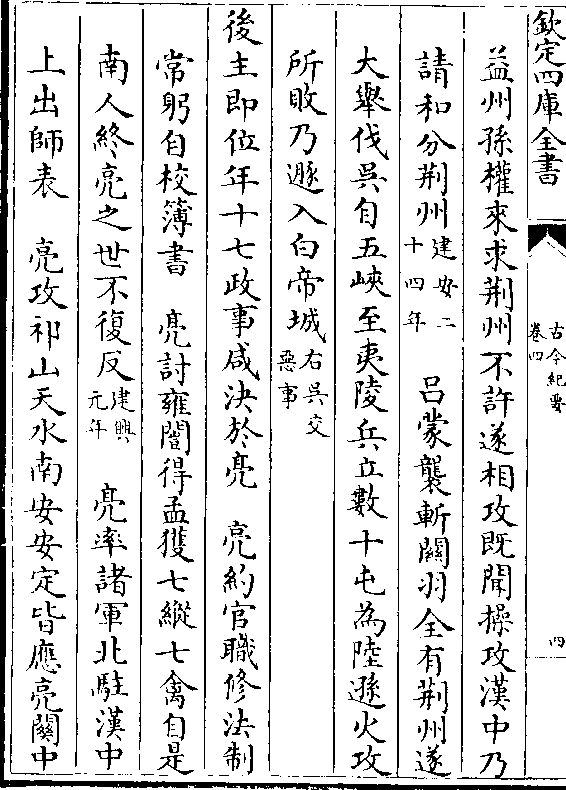 欽定四庫全書
古今紀要
卷四
四
益州孫權來求荆州不許遂相攻既聞操攻漢中乃
請和分荆州建安二十四年　吕蒙襲斬關羽全有荆州遂
大舉伐吳自五峽至夷陵兵立數十屯為陸遜火攻
所敗乃遯入白帝城右吳交惡事
後主即位年十七政事咸決於亮　亮約官職修法制
常躬自校簿書　亮討雍闓得孟獲七縱七禽自是
南人終亮之世不復反建興元年　亮率諸軍北駐漢中
上出師表　亮攻祁山天水南安安定皆應亮關中